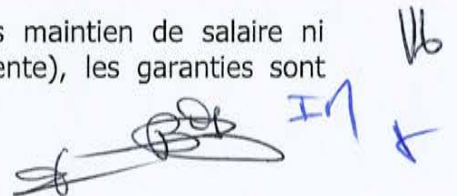 s maintien de salaire ni
ente), les garanties sont